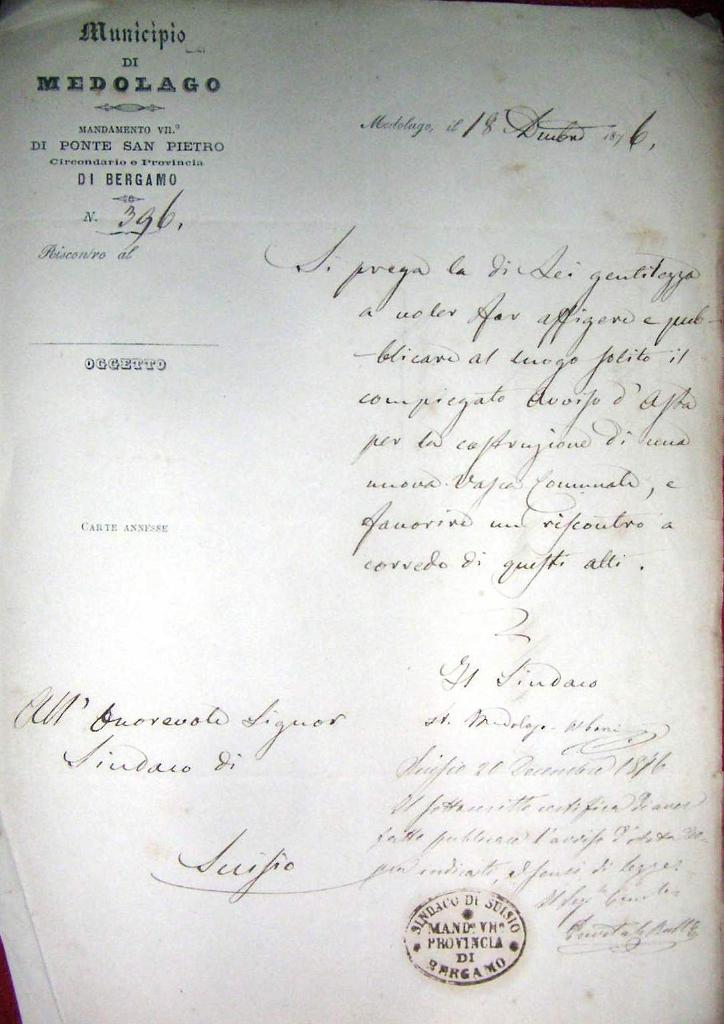 Municipio
DI
MEDOLAGO
MANDAMENTO VII.º
DI PONTE SAN PIETRO
Circondario e Provincia
DI BERGAMO
N. 396.
Riscontro al
OGGETTO
CARTE ANNESSE
Medolago, il 18 Dicembre 1876.
Si prega la di Lei gentilezza
a voler far affigere e pub-
blicare al luogo solito il
compiegato Avviso d'Asta
per la costruzione di una
nuova Vasca Comunale, e
favorire un riscontro a
corredo di questi atti.
Il Sindaco
Medolago Albani
All' Onorevole Signor
Sindaco di
Suisio
Suisio 20 Decembre 1876
Il sottoscritto certifica d'aver
fatto publicare l'avviso d'Asta
indicato, a sensi di legge
Il
SINDACO DI SUISIO
MAND.º VIIº
PROVINCIA
DI
BERGAMO